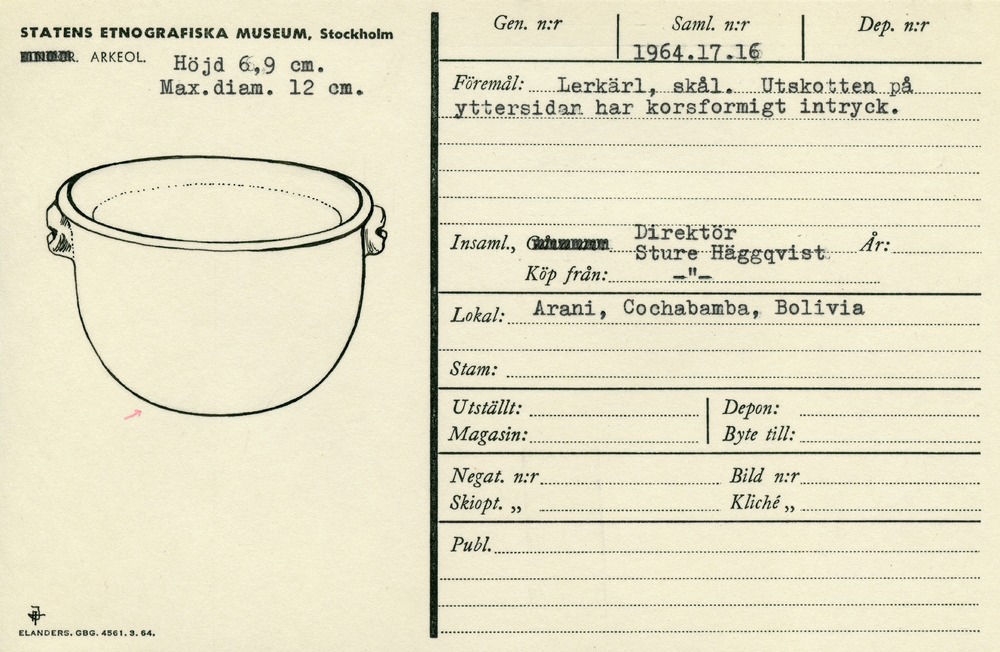 STATENS ETNOGRAFISKA MUSEUM, Stockholm
R. ARKEOL.
Höjd 6,9 cm.
Max.diam. 12 cm.
ELANDERS. GBG. 4561. 3. 64.
Gen. n:r Saml. n:r Dep. n:r
1964.17.16
Föremål: Lerkärl, skål. Utskotten på
yttersidan har korsformigt intryck.
Direktör
Insaml., Sture Häggqvist År:
Köp från: -"-
Lokal: Arani, Cochabamba, Bolivia
Stam:
Utställt: Depon:
Magasin: Byte till:
Negat. n:r Bild n:r
Skiopt. „ Kliché „
Publ.